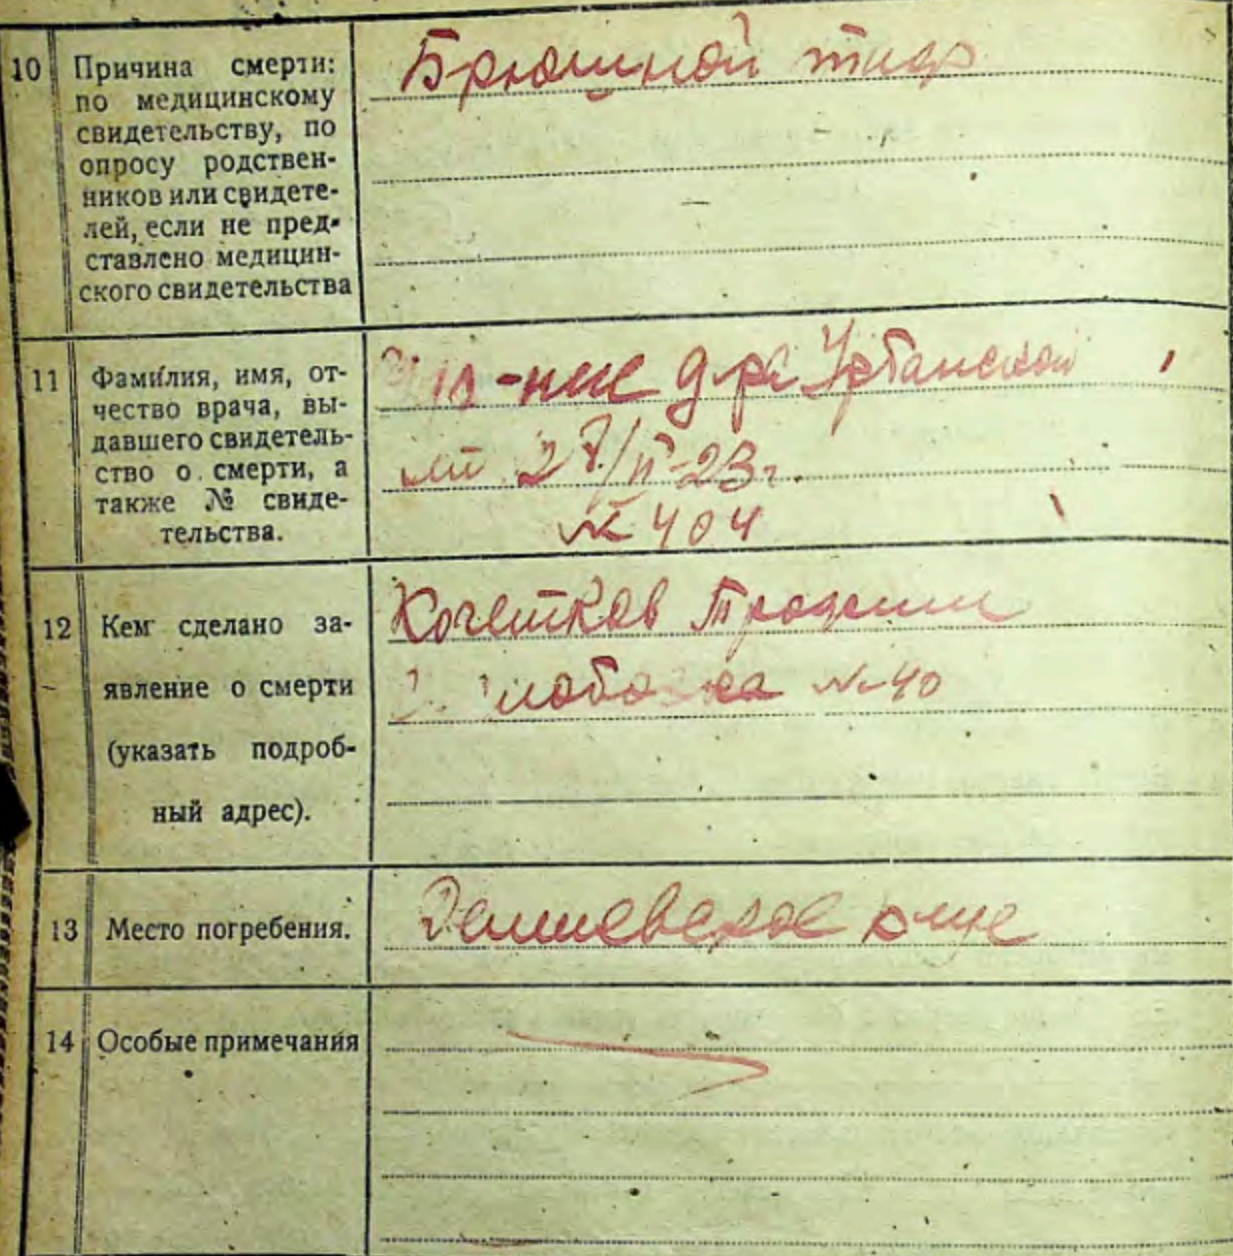 10 Причина смерти:
по медицинскому
свидетельству, по
опросу родствен-
ников или свидете-
лей, если не пред-
ставлено медицин-
ского свидетельства
Брюшной тиф
11 Фамилия, имя, от-
чество врача, вы-
давшего свидетель-
ство о смерти, а
также № свиде-
тельства.
-ние д-ра Урбанской
27/II-23г.
№ 404
12 Кем сделано за-
явление о смерти
(указать подроб-
ный адрес).
Кочетков Трофим
№ 40
13 Место погребения.
14 Особые примечания